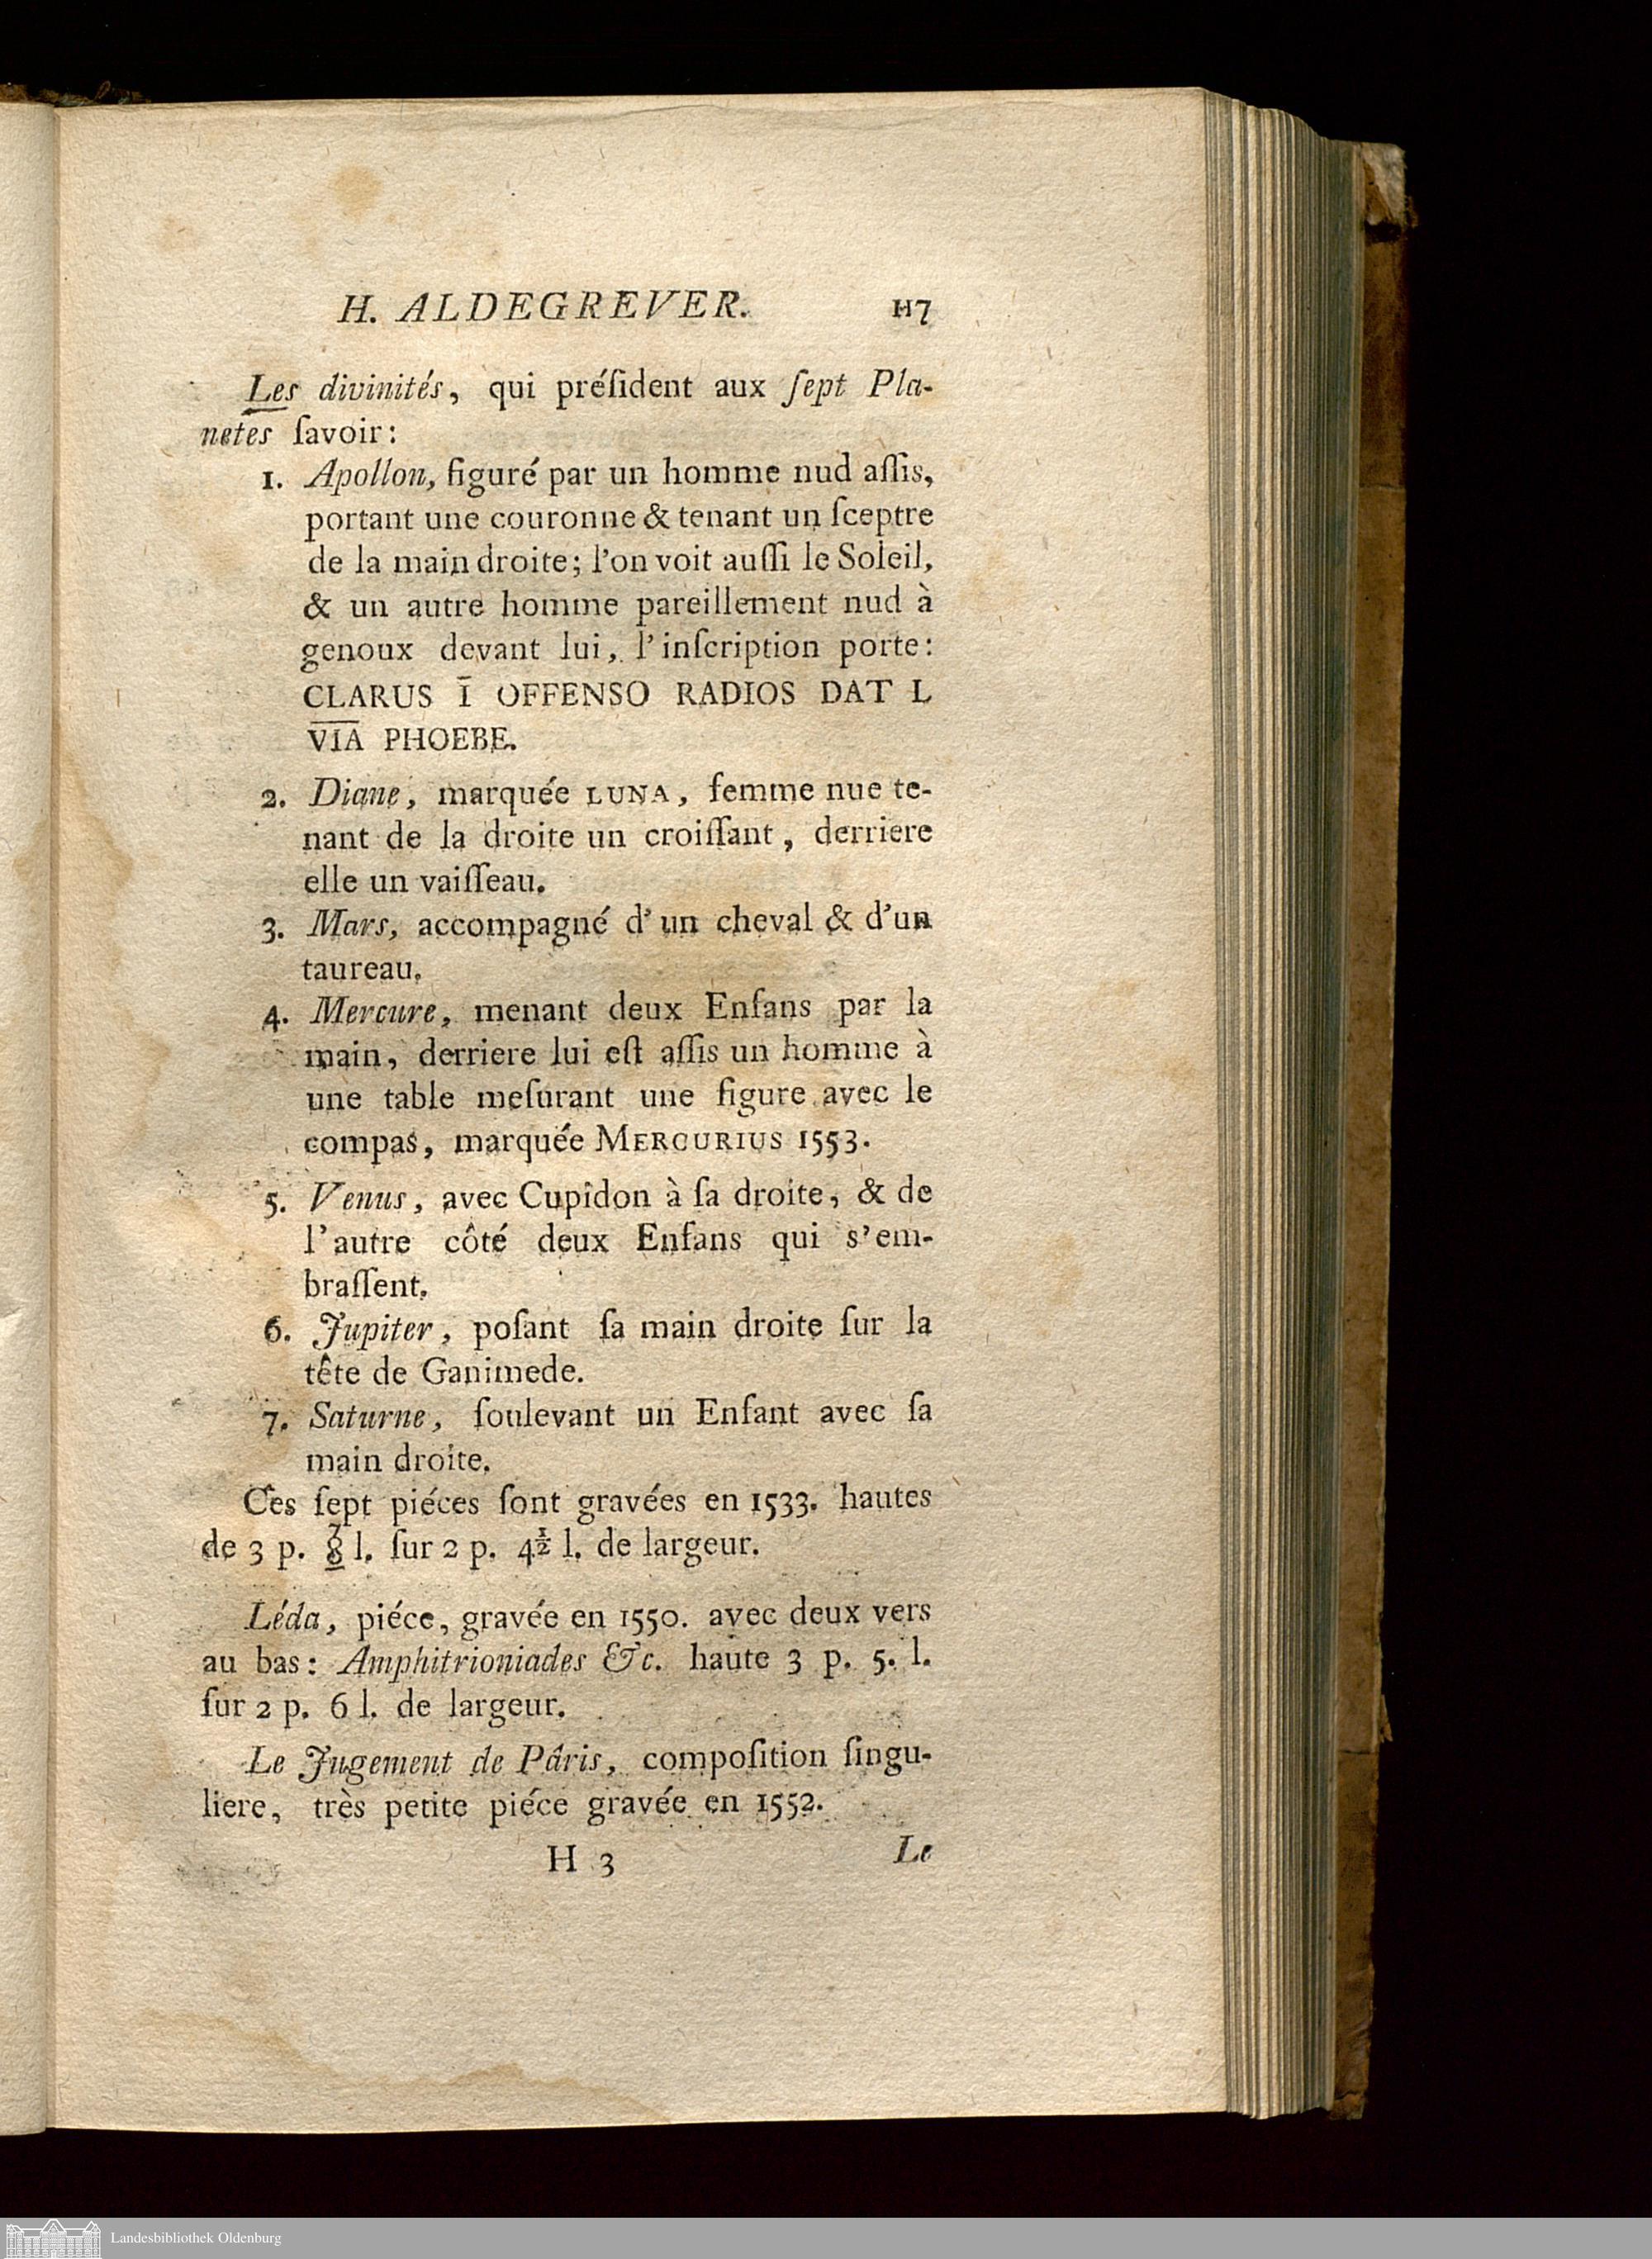 H. ALDEGREVER. 117
Les divinités, qui préſident aux ſept Pla-
netes ſavoir:
1. Apollon, figuré par un homme nud aſſis,
portant une couronne & tenant un ſceptre
de la main droite; l'on voit auſſi le Soleil,
& un autre homme pareillement nud à
genoux devant lui, l'inſcription porte:
CLARUS Ī OFFENSO RADIOS DAT L
V̅I̅A̅ PHOEBE.
2. Diane, marquée LUNA, femme nue te-
nant de la droite un croiſſant, derriere
elle un vaiſſeau.
3. Mars, accompagné d'un cheval & d'un
taureau.
4. Mercure, menant deux Enfans par la
main, derriere lui eſt aſſis un homme à
une table meſurant une figure avec le
compas, marquée MERCURIUS 1553.
5. Venus, avec Cupidon à ſa droite, & de
l'autre côté deux Enfans qui s'em-
braſſent.
6. Jupiter, poſant ſa main droite ſur la
tête de Ganimede.
7. Saturne, ſoulevant un Enfant avec ſa
main droite.
Ces ſept piéces ſont gravées en 1533. hautes
de 3 p. l. ſur 2 p. 4½ l. de largeur.
Léda, piéce, gravée en 1550. avec deux vers
au bas: Amphitrioniades &c. haute 3 p. 5. l.
ſur 2 p. 6 l. de largeur.
Le Jugement de Pâris, compoſition ſingu-
liere, très petite piéce gravée en 1552.
H 3 Le
Landesbibliothek Oldenburg